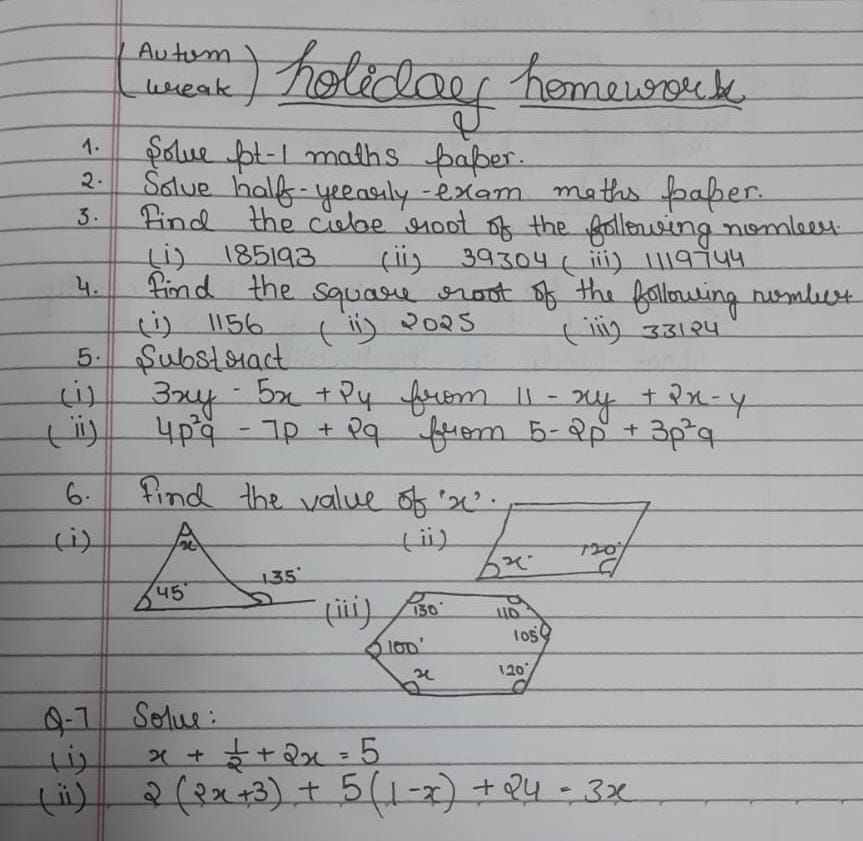 (Autum
weeak) holiday homework
1. Solve pt-1 maths paper.
2. Solve half-yeearly-exam maths paper.
3. Find the cube root of the following nomber.
(i) 185193 (ii) 39304 (iii) 1119744
4. Find the square root of the following number
(i) 1156 (ii) 2025 (iii) 33124
5. Substract
(i) 3xy - 5x + 2y from 11 - xy + 2x - y
(ii) 4p²q - 7p + 2q from 5 - 2p + 3p²q
6. Find the value of 'x'.
(i) x 45° 135°
(ii) x° 120°
(iii) 130° 110° 105° 120° x 100°
Q-7 Solve:
(i) x + 1/2 + 2x = 5
(ii) 2(2x+3) + 5(1-x) + 24 = 3x